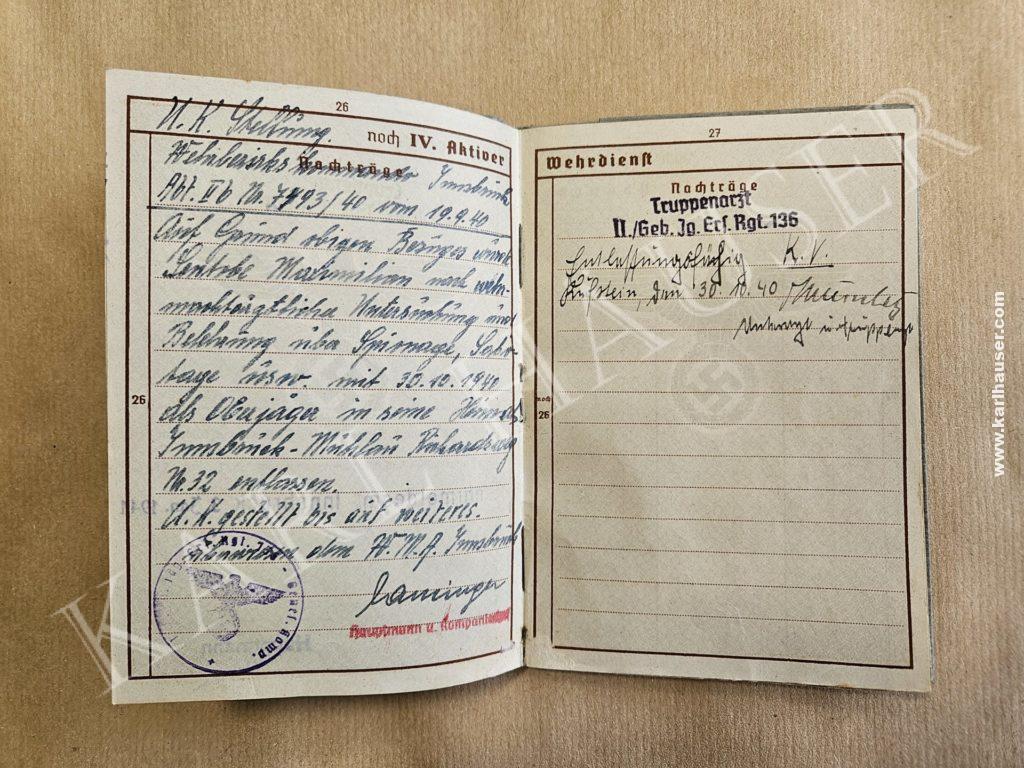 26
U. K. Stellung.
noch IV. Aktiver
Nachträge
Wehrbezirks Kommando Innsbruck
Abt. IIb Nr. 7493/40 vom 19.9.40
Auf Grund obigen Bezuges wurde
Maximilian nach wehr-
machtärztlicher Untersuchung und
Belehrung über Spionage, Sabo-
tage usw. mit 30.10.1940
als Oberjäger in seine Heimat
Innsbruck-Mühlau
Nr. 32 entlassen.
U. K. gestellt bis auf weiteres.
dem W.M.A. Innsbruck
26
Hauptmann u. Kompaniechef
27
Wehrdienst
Nachträge
Truppenarzt
II./Geb. Jg. Ers. Rgt. 136
Entlassungsfähig K.V.
Kufstein, den 30.10.40
Unterarzt u. Truppenarzt
noch
26
KARL HAUSER
www.karlhauser.com